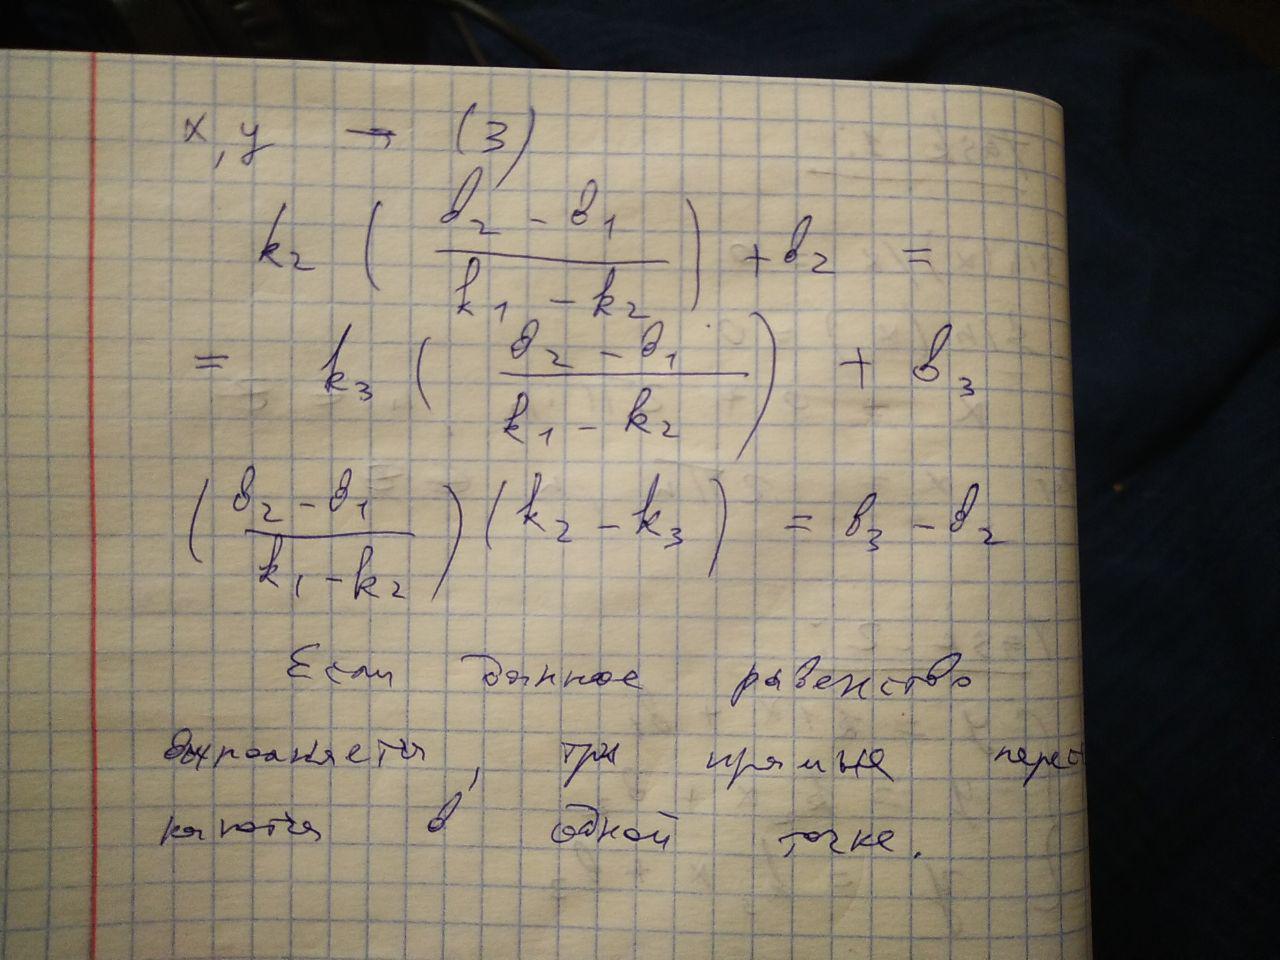 x, y → (3)
k₂ ( (b₂ - b₁) / (k₁ - k₂) ) + b₂ =
= k₃ ( (b₂ - b₁) / (k₁ - k₂) ) + b₃
( (b₂ - b₁) / (k₁ - k₂) ) (k₂ - k₃) = b₃ - b₂
Если данное равенство
выполняется, три прямые перес
каются в одной точке.